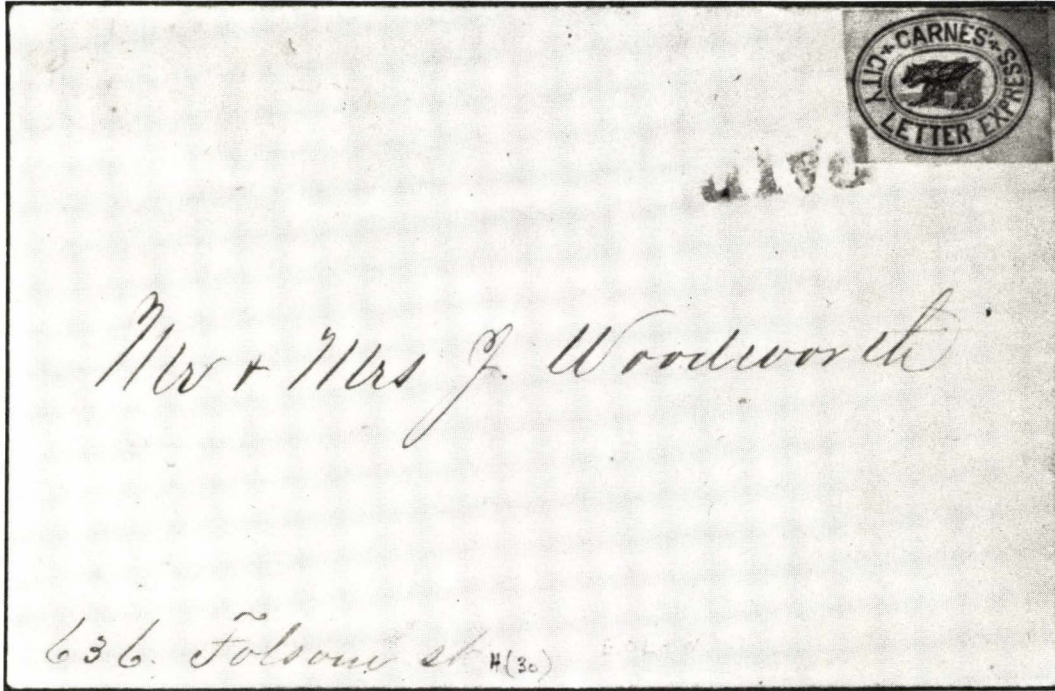 CARNES' CITY LETTER EXPRESS
PAID
Mr & Mrs J. Woodworth
636. Folsom st H(30)